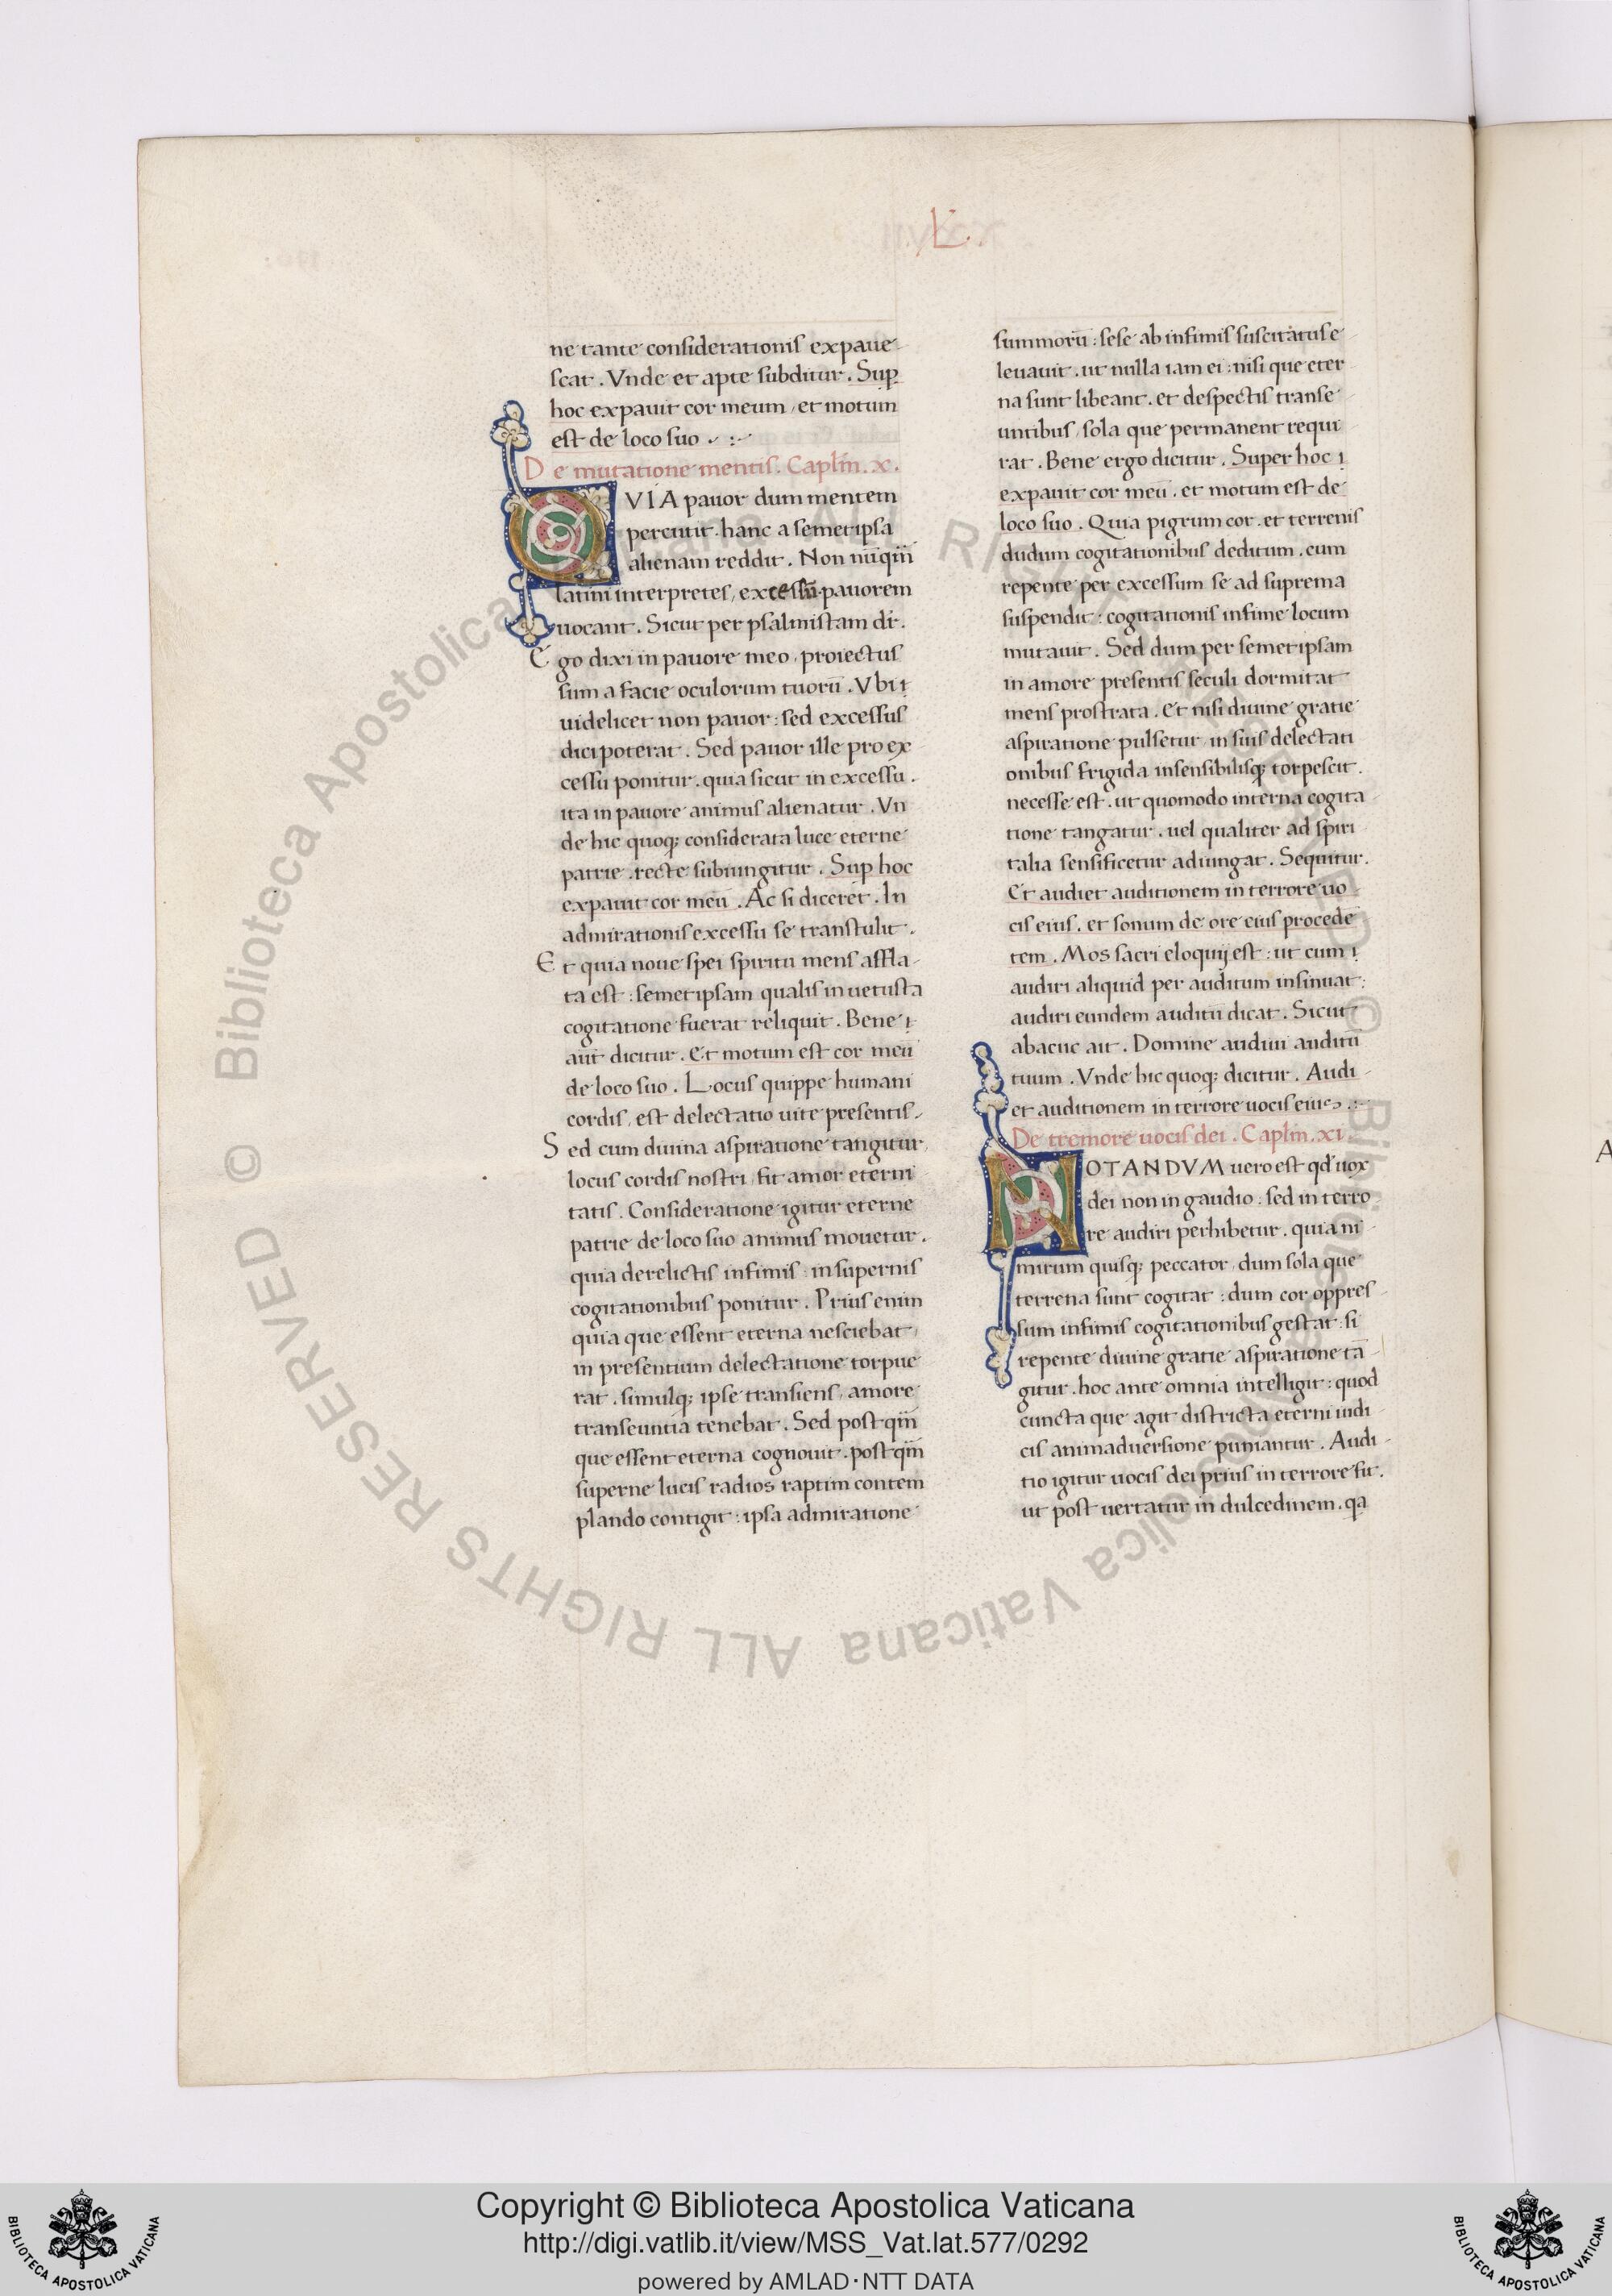 .L.
ne tante considerationis expaue-
scat . Vnde et apte subditur . Sup̱
hoc expauit cor meum , et motum
est de loco suo . :~
De mutatione mentis. Caplm̄ .x.
QVIA pauor dum mentem
percutit . hanc a semetipsa
alienam reddit . Non nūqm̄
latini interpretes , excessū pauorem
uocant . Sicut per psalmistam dr̄.
Ego dixi in pauore meo , proiectus
sum a facie oculorum tuorū . Vbi
uidelicet non pauor : sed excessus
dici poterat . Sed pauor ille pro ex
cessu ponitur . quia sicut in excessu .
ita in pauore animus alienatur . Vn
de hic quoq; considerata luce eterne
patrie . recte subiungitur . Sup̱ hoc
expauit cor meū . Ac si diceret . In
admirationis excessu se transtulit .
Et quia noue spei spiritu mens affla-
ta est : semetipsam qualis in uetusta
cogitatione fuerat reliquit . Bene
aūt dicitur . Et motum est cor meū
de loco suo . Locus quippe humani
cordis , est delectatio uite presentis .
Sed cum diuina aspiratione tangitur ,
locus cordis nostri , fit amor eterni
tatis . Consideratione igitur eterne
patrie de loco suo animus mouetur .
quia derelictis infimis : in supernis
cogitationibus ponitur . Prius enim
quia que essent eterna nesciebat ,
in presentium delectatione torpue
rat . simulq; ipse transiens , amore
transeuntia tenebat . Sed postqm̄
que essent eterna cognouit . postqm̄
superne lucis radios raptim contem
plando contigit : ipsa admiratione
summorū : sese ab infimis suscitatus e
leuauit . ut nulla iam ei : nisi que eter
na sunt libeant . et despectis transe
untibus , sola que permanent requi
rat . Bene ergo dicitur . Super hoc
expauit cor meū . et motum est de
loco suo . Quia pigrum cor . et terrenis
dudum cogitationibus deditum . cum
repente per excessum se ad suprema
suspendit : cogitationis infime locum
mutauit . Sed dum per semetipsam
in amore presentis seculi dormitat
mens prostrata . Et nisi diuine gratie
aspiratione pulsetur , in suis delectati
onibus frigida insensibilisq; torpescit .
necesse est . ut quomodo interna cogita
tione tangatur . uel qualiter ad spiri
talia sensificetur adiungat . Sequitur .
Et audiet auditionem in terrore uo
cis eius . et sonum de ore eius procedē
tem . Mos sacri eloquij est : ut cum
audiri aliquid per auditum insinuat :
audiri eundem auditū dicat . Sicut
abacuc ait . Domine audiui auditū
tuum . Vnde hic quoq; dicitur . Audi-
et auditionem in terrore uocis eius . :~
De tremore uocis dei . Caplm̄ . xi.
NOTANDVM uero est qd̄ uox
dei non in gaudio : sed in terro
re audiri perhibetur . quia ni-
mirum quisq; peccator , dum sola que
terrena sunt cogitat : dum cor oppres-
sum infimis cogitationibus gestat : si
repente diuine gratie aspiratione tā-
gitur . hoc ante omnia intelligit : quod
cuncta que agit districta eterni iudi-
cis animaduersione puniantur . Audi-
tio igitur uocis dei prius in terrore fit .
ut post uertatur in dulcedinem . qa
© Biblioteca Apostolica Vaticana ALL RIGHTS RESERVED
Copyright © Biblioteca Apostolica Vaticana
http://digi.vatlib.it/view/MSS_Vat.lat.577/0292
powered by AMLAD·NTT DATA
BIBLIOTECA APOSTOLICA VATICANA
BIBLIOTECA APOSTOLICA VATICANA